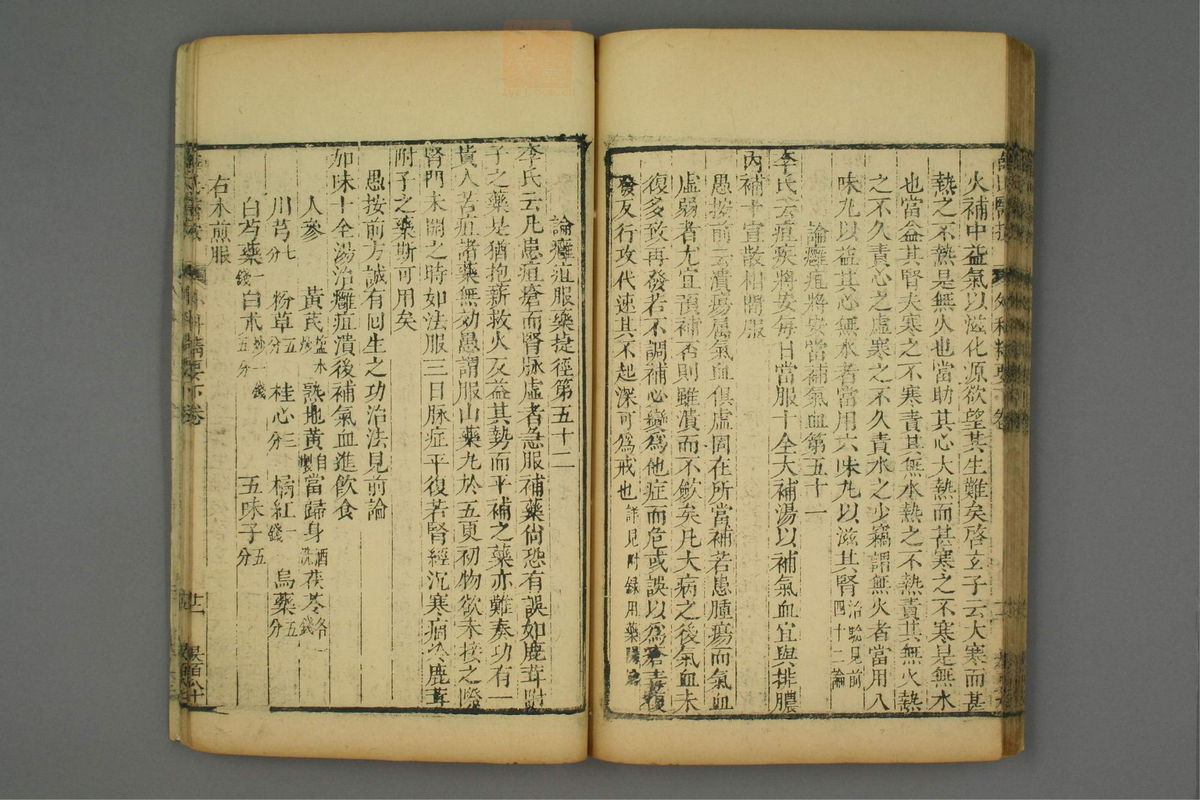 火補中益氣以滋化源欲望其生難矣啓玄子云大寒而甚
熱之不熱是無火也當助其心大熱而甚寒之不寒是無水
也當益其腎夫寒之不寒責其無水熱之不熱責其無火熱
之不久責心之虛寒之不久責水之少竊謂無火者當用八
味丸以益其心無水者當用六味丸以滋其腎治驗見前四十二論
論癰疽將安當補氣血第五十一
李氏云疽疾將安每日當服十全大補湯以補氣血宜與排膿
內補十宣散相間服
愚按前云潰瘍屬氣血俱虛固在所當補若患腫瘍而氣血
虛弱者尤宜預補否則雖潰而不斂矣凡大病之後氣血未
復多致再發若不調補必變爲他症而危或誤以爲瘡毒復
發反行攻伐速其不起深可爲戒也詳見附録用藥
論癰疽服藥捷徑第五十二
李氏云凡患疽瘡而腎脉虛者急服補藥尚恐有誤如鹿茸附
子之藥是猶抱薪救火反益其勢而平補之藥亦難奏功有一
貴人苦疽諸藥無効愚謂服山藥丸於五更初物欲未接之際
腎門未開之時如法服三日脉症平復若腎經沉寒痼冷鹿茸
附子之藥斯可用矣
愚按前方誠有回生之功治法見前論
加味十全湯治癰疽潰後補氣血進飲食
人參 黃芪塩水炒 熟地黃自製 當歸身酒洗 茯苓各一錢
川芎七分 粉草五分 桂心三分 橘紅一錢 烏藥五分
白芍藥一錢 白朮炒一錢五分 五味子五分
右水煎服